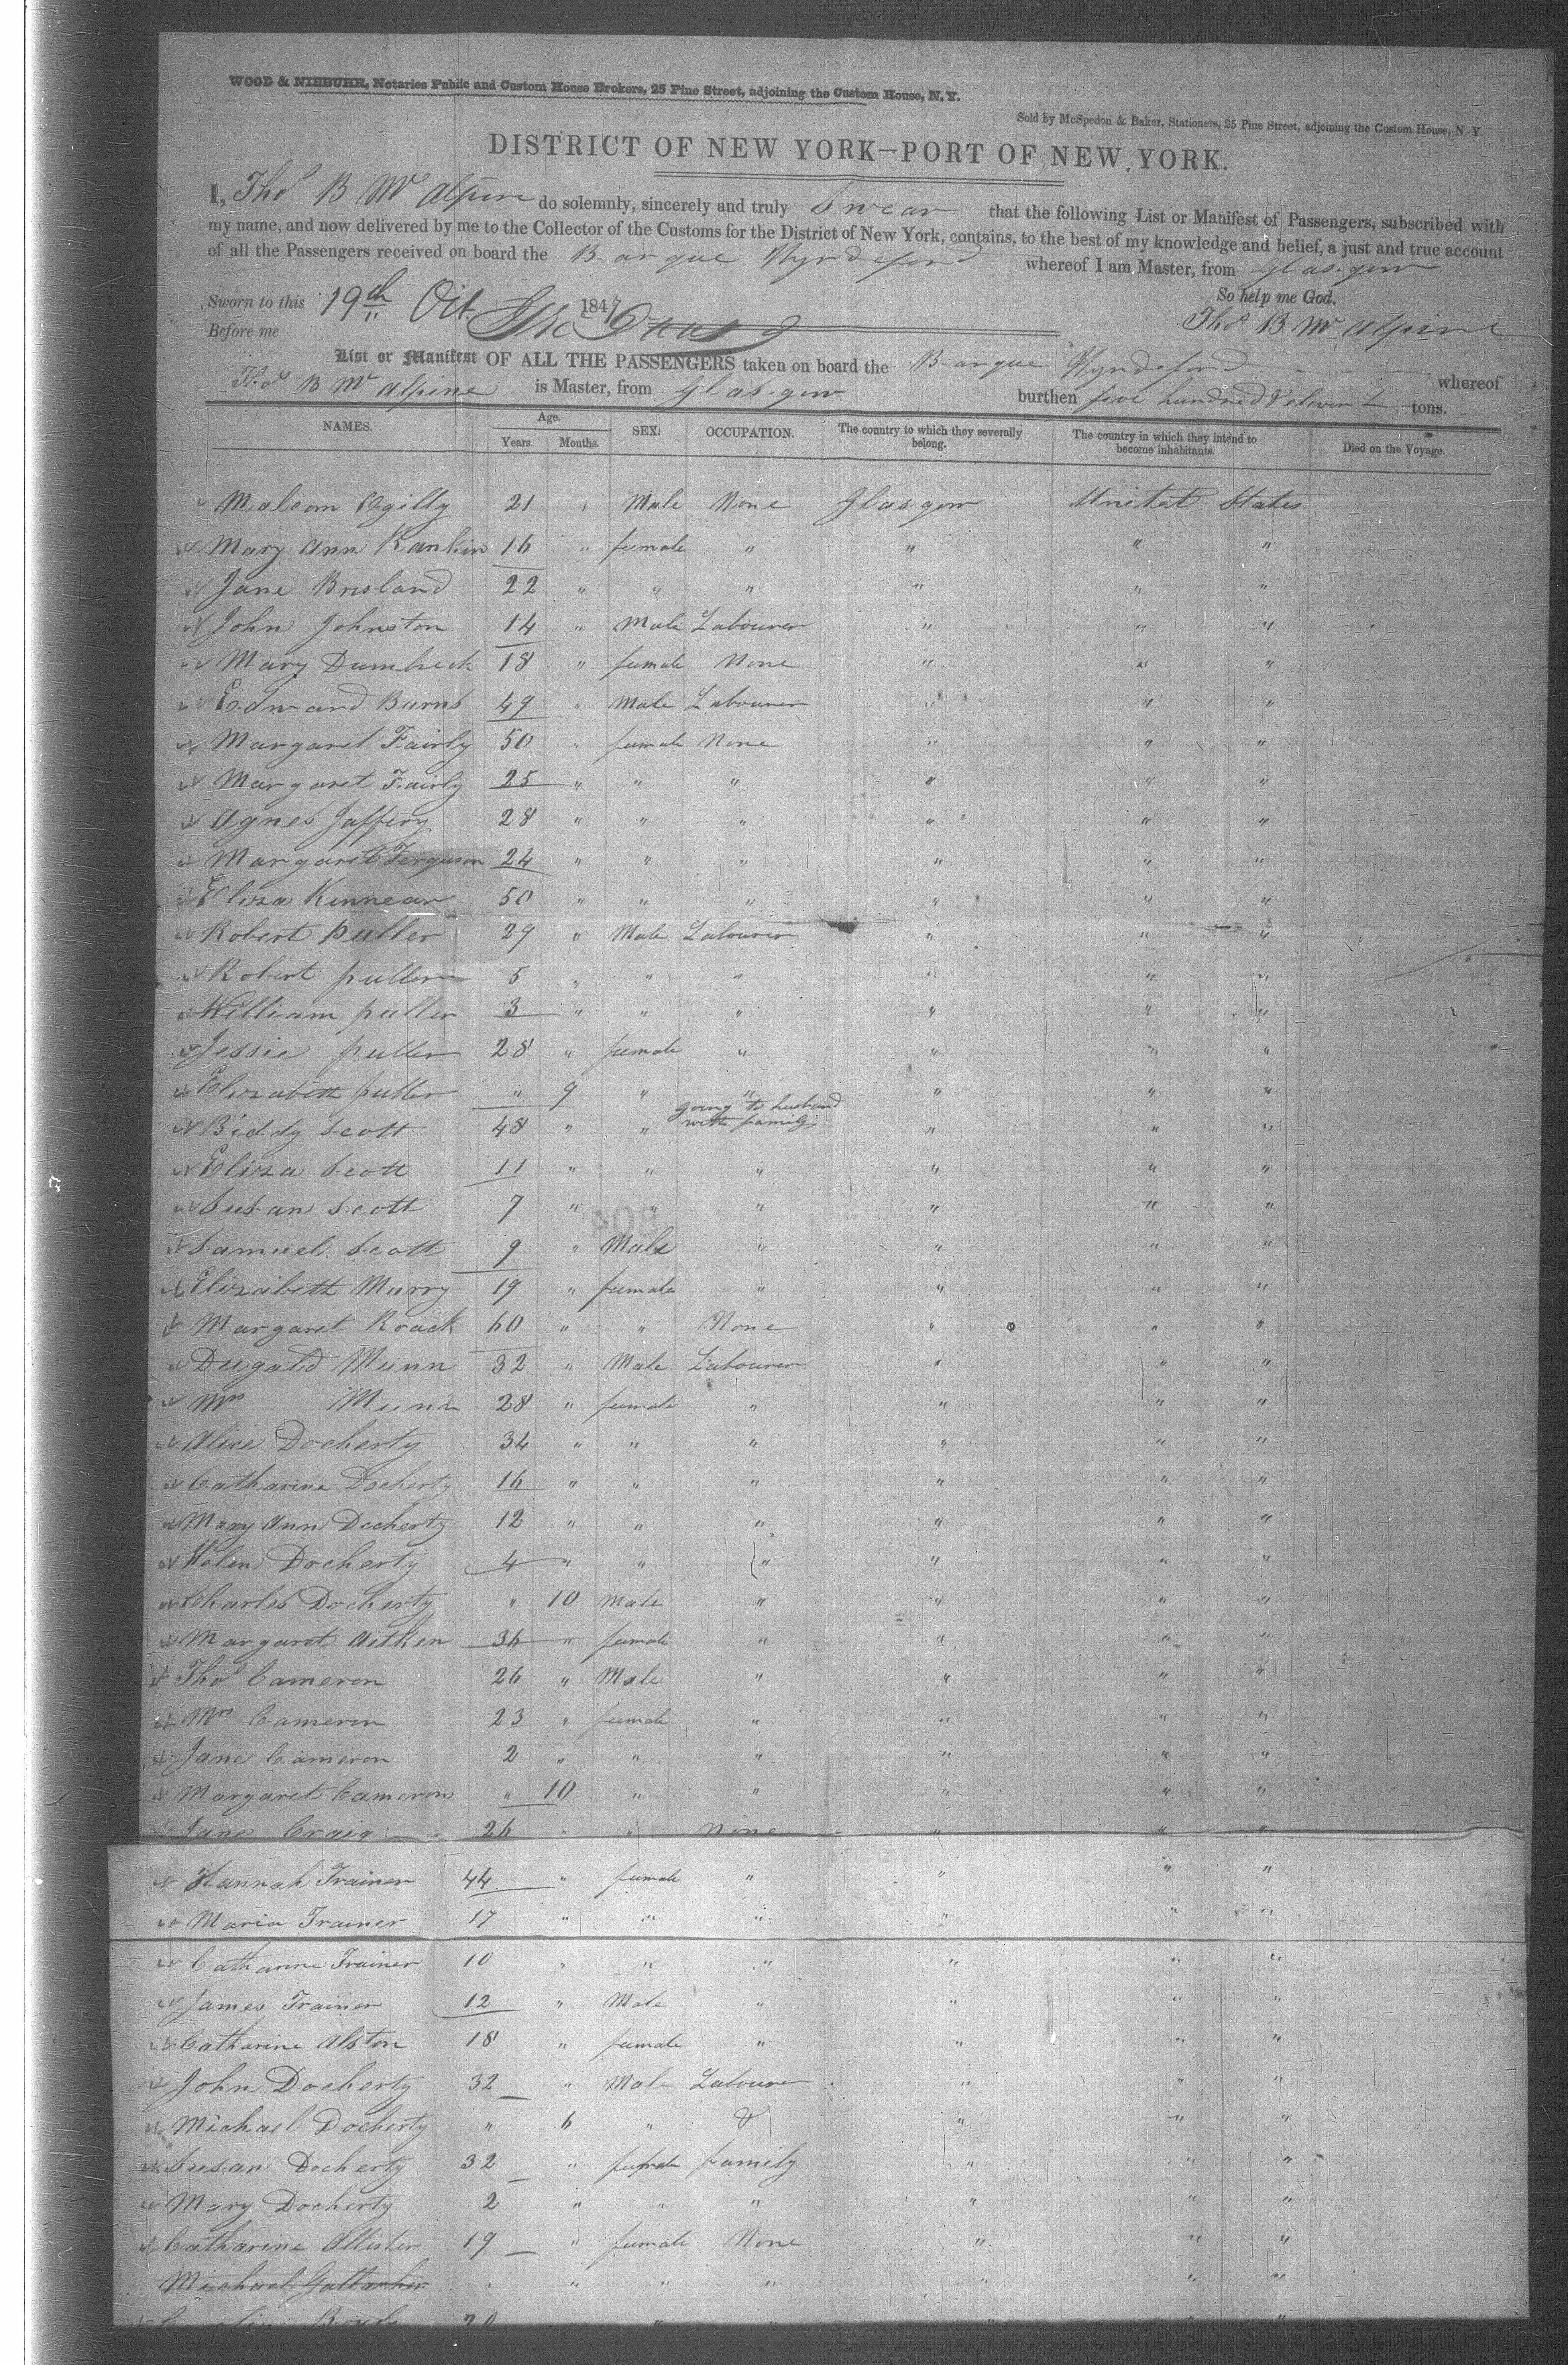 WOOD & NIEBUHR, Notaries Public and Custom House Brokers, 25 Pine Street, adjoining the Custom House, N. Y.
Sold by McSpedon & Baker, Stationers, 25 Pine Street, adjoining the Custom House, N. Y.
DISTRICT OF NEW YORK—PORT OF NEW YORK.
I, Thos B Mc Alpine do solemnly, sincerely and truly Swear that the following List or Manifest of Passengers, subscribed with
my name, and now delivered by me to the Collector of the Customs for the District of New York, contains, to the best of my knowledge and belief, a just and true account
of all the Passengers received on board the Barque Wyndeford whereof I am Master, from Glasgow
So help me God.
Sworn to this 19th Oct 1847
Thos B Mc Alpine
Before me
List or Manifest OF ALL THE PASSENGERS taken on board the Barque Wyndeford whereof
Thos B Mc Alpine is Master, from Glasgow burthen five hundred & eleven tons.
NAMES. Age. Years. Months. SEX. OCCUPATION. The country to which they severally belong. The country in which they intend to become inhabitants. Died on the Voyage.
Malcom Ogilly 21 " Male None Glasgow Unitet States
Mary Ann Rankin 16 " female " " " "
Jane Brisland 22 " " " " " "
John Johnston 14 " Male Labourer " " "
Mary Dumbreck 18 " female None " " "
Edward Burns 49 " Male Labourer " " "
Margaret Fairly 50 " female None " " "
Margaret Fairly 25 " " " " " "
Agnes Jaffery 28 " " " " " "
Margaret Ferguson 24 " " " " " "
Eliza Kinnear 50 " " " " " "
Robert Puller 29 " Male Labourer " " "
Robert puller 5 " " " " " "
William puller 3 " " " " " "
Jessie puller 28 " female " " " "
Elizabeth puller " 9 " " " " "
Biddy Scott 48 " " going to husband with family " " "
Eliza Scott 11 " " " " " "
Susan Scott 7 " " " " " "
Samuel Scott 9 " Male " " " "
Elizabeth Murry 19 " female " " " "
Margaret Roack 60 " " None " " "
Dugald Munn 32 " Male Labourer " " "
Mrs Munn 28 " female " " " "
Alice Docherty 34 " " " " " "
Catharine Docherty 16 " " " " " "
Mary Ann Docherty 12 " " " " " "
Helen Docherty 4 " " " " " "
Charles Docherty " 10 Male " " " "
Margaret Aitken 36 " female " " " "
Thos Cameron 26 " Male " " " "
Mrs Cameron 23 " female " " " "
Jane Cameron 2 " " " " " "
Margaret Cameron " 10 " " " " "
Jane Craig 26 " " None " " "
Hannah Trainer 44 " female " " " "
Maria Trainer 17 " " " " " "
Catharine Trainer 10 " " " " " "
James Trainer 12 " Male " " " "
Catharine Alston 18 " female " " " "
John Docherty 32 " Male Labourer " " "
Michael Docherty " 6 " & " " "
Susan Docherty 32 " female family " " "
Mary Docherty 2 " " " " " "
Catharine Allister 19 " female None " " "
Michael Gallacher " " " " " " "
20